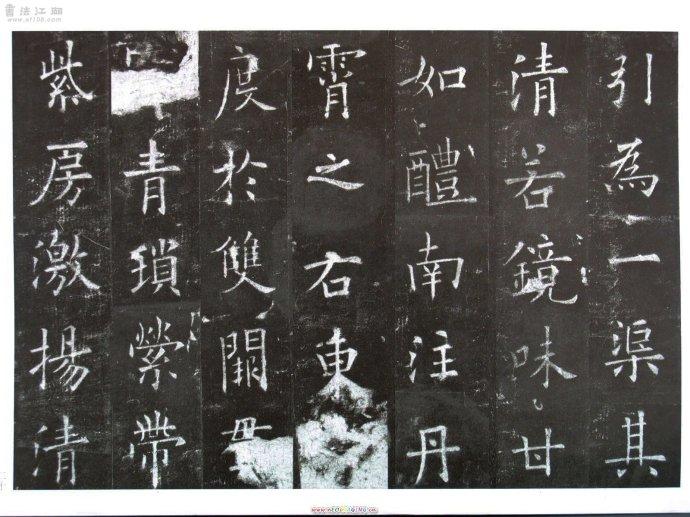 書法江湖
www.sf108.com
引為一渠其
清若鏡味甘
如醴南注丹
霄之右東
度於雙闕貫
青瑣縈帶
紫房激揚清